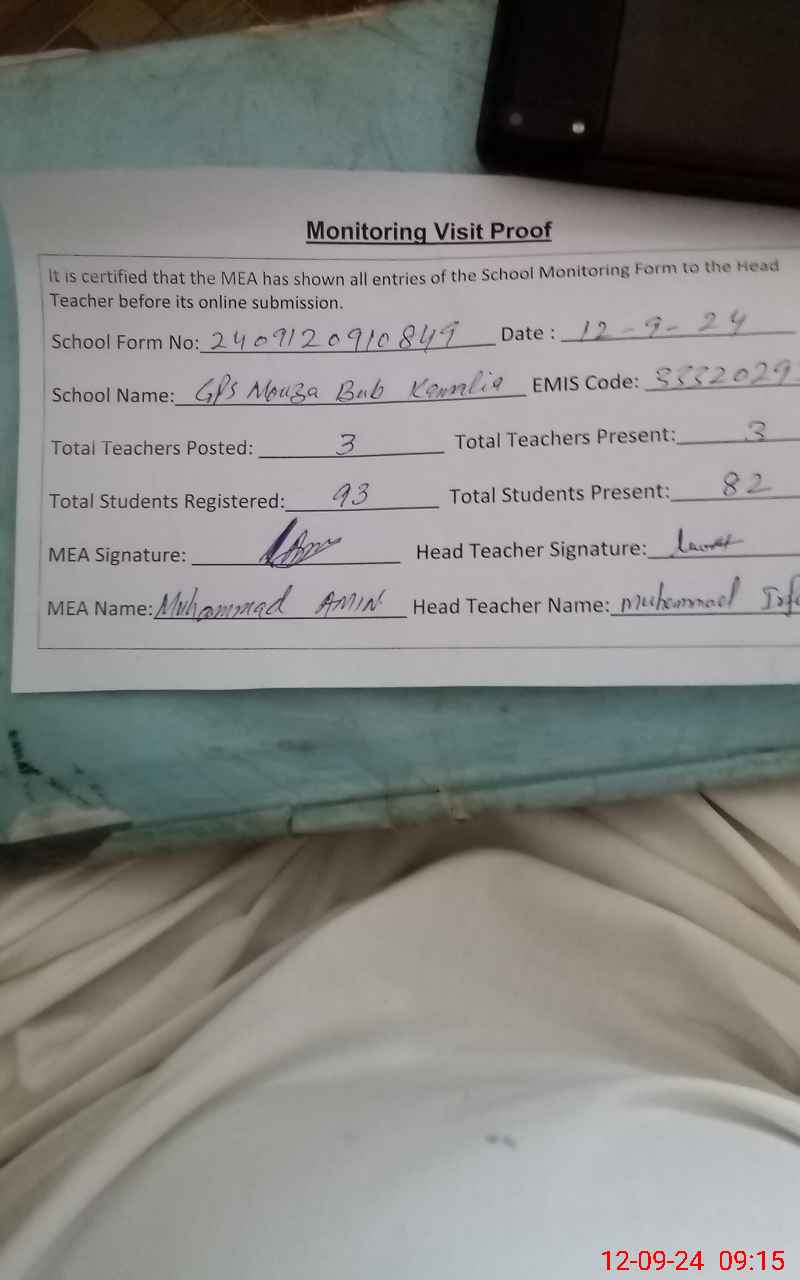 Monitoring Visit Proof
It is certified that the MEA has shown all entries of the School Monitoring Form to the Head
Teacher before its online submission.
School Form No: 2409120910849 Date : 12-9-24
School Name: GPS Mouza Bub Kamalia EMIS Code: 3332029
Total Teachers Posted: 3 Total Teachers Present: 3
Total Students Registered: 93 Total Students Present: 82
MEA Signature: Head Teacher Signature:
MEA Name: Muhammad AMIN Head Teacher Name: Muhammad
12-09-24 09:15